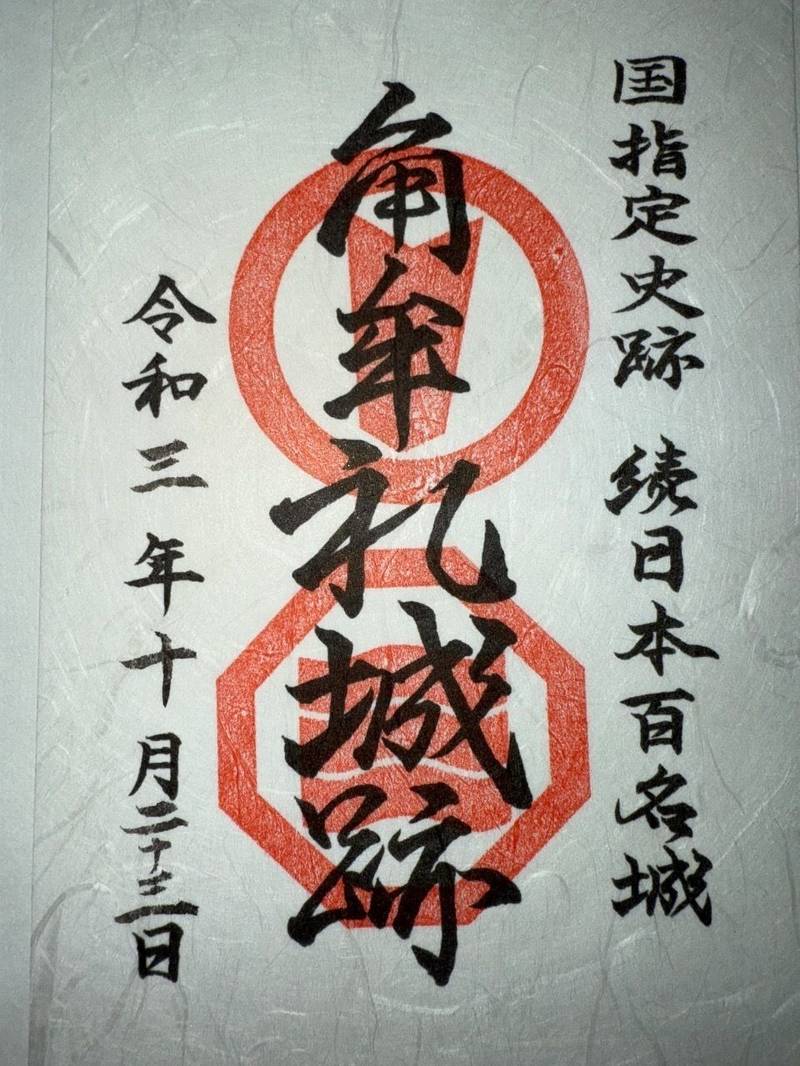 国指定史跡 続日本百名城
角牟礼城跡
令和三年十月二十三日